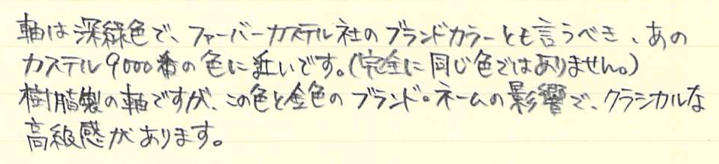 軸は深緑色で、ファーバーカステル社のブランドカラーとも言うべき、あの
カステル9000番の色に近いです。(完全に同じ色ではありません。)
樹脂製の軸ですが、この色と金色のブランド・ネームの影響で、クラシカルな
高級感があります。